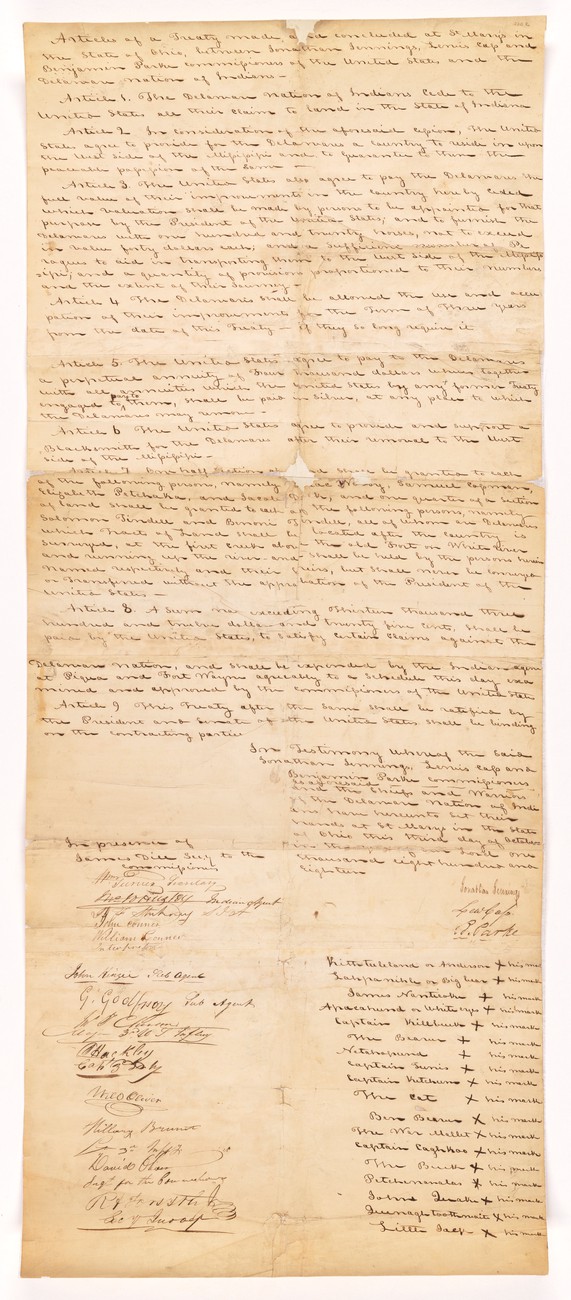 Articles of a Treaty made and concluded at St Mary's in
the State of Ohio, between Jonathan Jennings, Lewis Cass and
Benjamin Parke commissioners of the United States and the
Delaware nation of Indians—
Article 1. The Delaware Nation of Indians Cede to the
United States all their claim to land in the State of Indiana
Article 2 In consideration of the aforesaid cession, the United
States agree to provide for the Delawares a country to reside in upon
the West side of the Mississippi and to guarantee to them the
peaceable possession of the same—
Article 3. The United States also agree to pay the Delawares the
full value of their improvements in the country hereby ceded
which valuation shall be made by persons to be appointed for that
purpose by the President of the United States; and to furnish the
Delawares with one hundred and twenty horses, not to exceed
in value forty dollars each, and a sufficient number of Pe
rogues to aid in transporting them to the west side of the Missis
sippi, and a quantity of provisions proportioned to their numbers
and the extent of their Journey.—
Article 4 The Delawares shall be allowed the use and occu
pation of their improvements for the Term of Three Years
from the date of this Treaty— if they so long require it
Article 5. The United States agree to pay to the Delawares
a perpetual annuity of Four thousand dollars which together
with all annuities which the United States by any former Treaty
engaged to pay to them, shall be paid in Silver, at any place to which
the Delawares may remove—
Article 6 The United States agree to provide and support a
Blacksmith for the Delawares after their removal to the West
side of the Mississippi—
Article 7 One half Section of land shall be granted to each
of the following persons, namely, Samuel Cassman,
Elizabeth Petchaka, and Jacob and one quarter of a Section
of land shall be granted to each of the following persons, namely
Solomon Tindell and Benoni Tindell, all of whom are Delawares
which Tract of Land shall be located after the country is
Surveyed, at the first Creek above the old Fort on White River
and running up the river and shall be held by the persons herein
named respectively and their heirs, but shall never be conveyed
or Transferred without the approbation of the President of the
United States—
Article 8. A sum not exceeding Thirteen thousand three
hundred and twelve dollars and twenty five cents, shall be
paid by the United States, to satisfy certain claims against the
Delaware nation, and shall be expended by the Indian agent
at Piqua and Fort Wayne agreeably to a Schedule this day exa
mined and approved by the commissioners of the United States
Article 9 This Treaty after the same shall be ratified by
the President and Senate of the United States shall be binding
on the contracting parties
In Testimony Whereof the said
Jonathan Jennings, Lewis Cass and
Benjamin Parke commissioners
as aforesaid
and the Chiefs and Warriors
of the Delaware Nation of Indi
ans have hereunto set their
hands at St Marys in the State
of Ohio this third day of October
in the year of our Lord one
thousand eight hundred and
eighteen
In presence of
James Dill Secy to the
Commissioners
Wm Turner Secretary
Indian Agent
John Conner
William Conner
Interpreter
Jonathan Jennings
Lew Cass
B. Parke
John Kinzie Sub Agent
G. Godfroy Sub Agent
Wm Oliver
Hillary Brunot
David Oliver
Kithteeleland or Anderson X his mark
Lahpanihle or Big bear X his mark
James Nanticoke X his mark
Apacahund or White eyes X his mark
Captain Killbuck X his mark
The Beaver X his mark
Netahopund X his mark
Captain Tunis X his mark
Captain Ketchum X his mark
The Cat X his mark
Ben Beaver X his mark
The War Mallet X his mark
Captain Caghkoo X his mark
The Buck X his mark
Petchenanalas X his mark
John Quake X his mark
Queenaghtoothmait X his mark
Little Jack X his mark